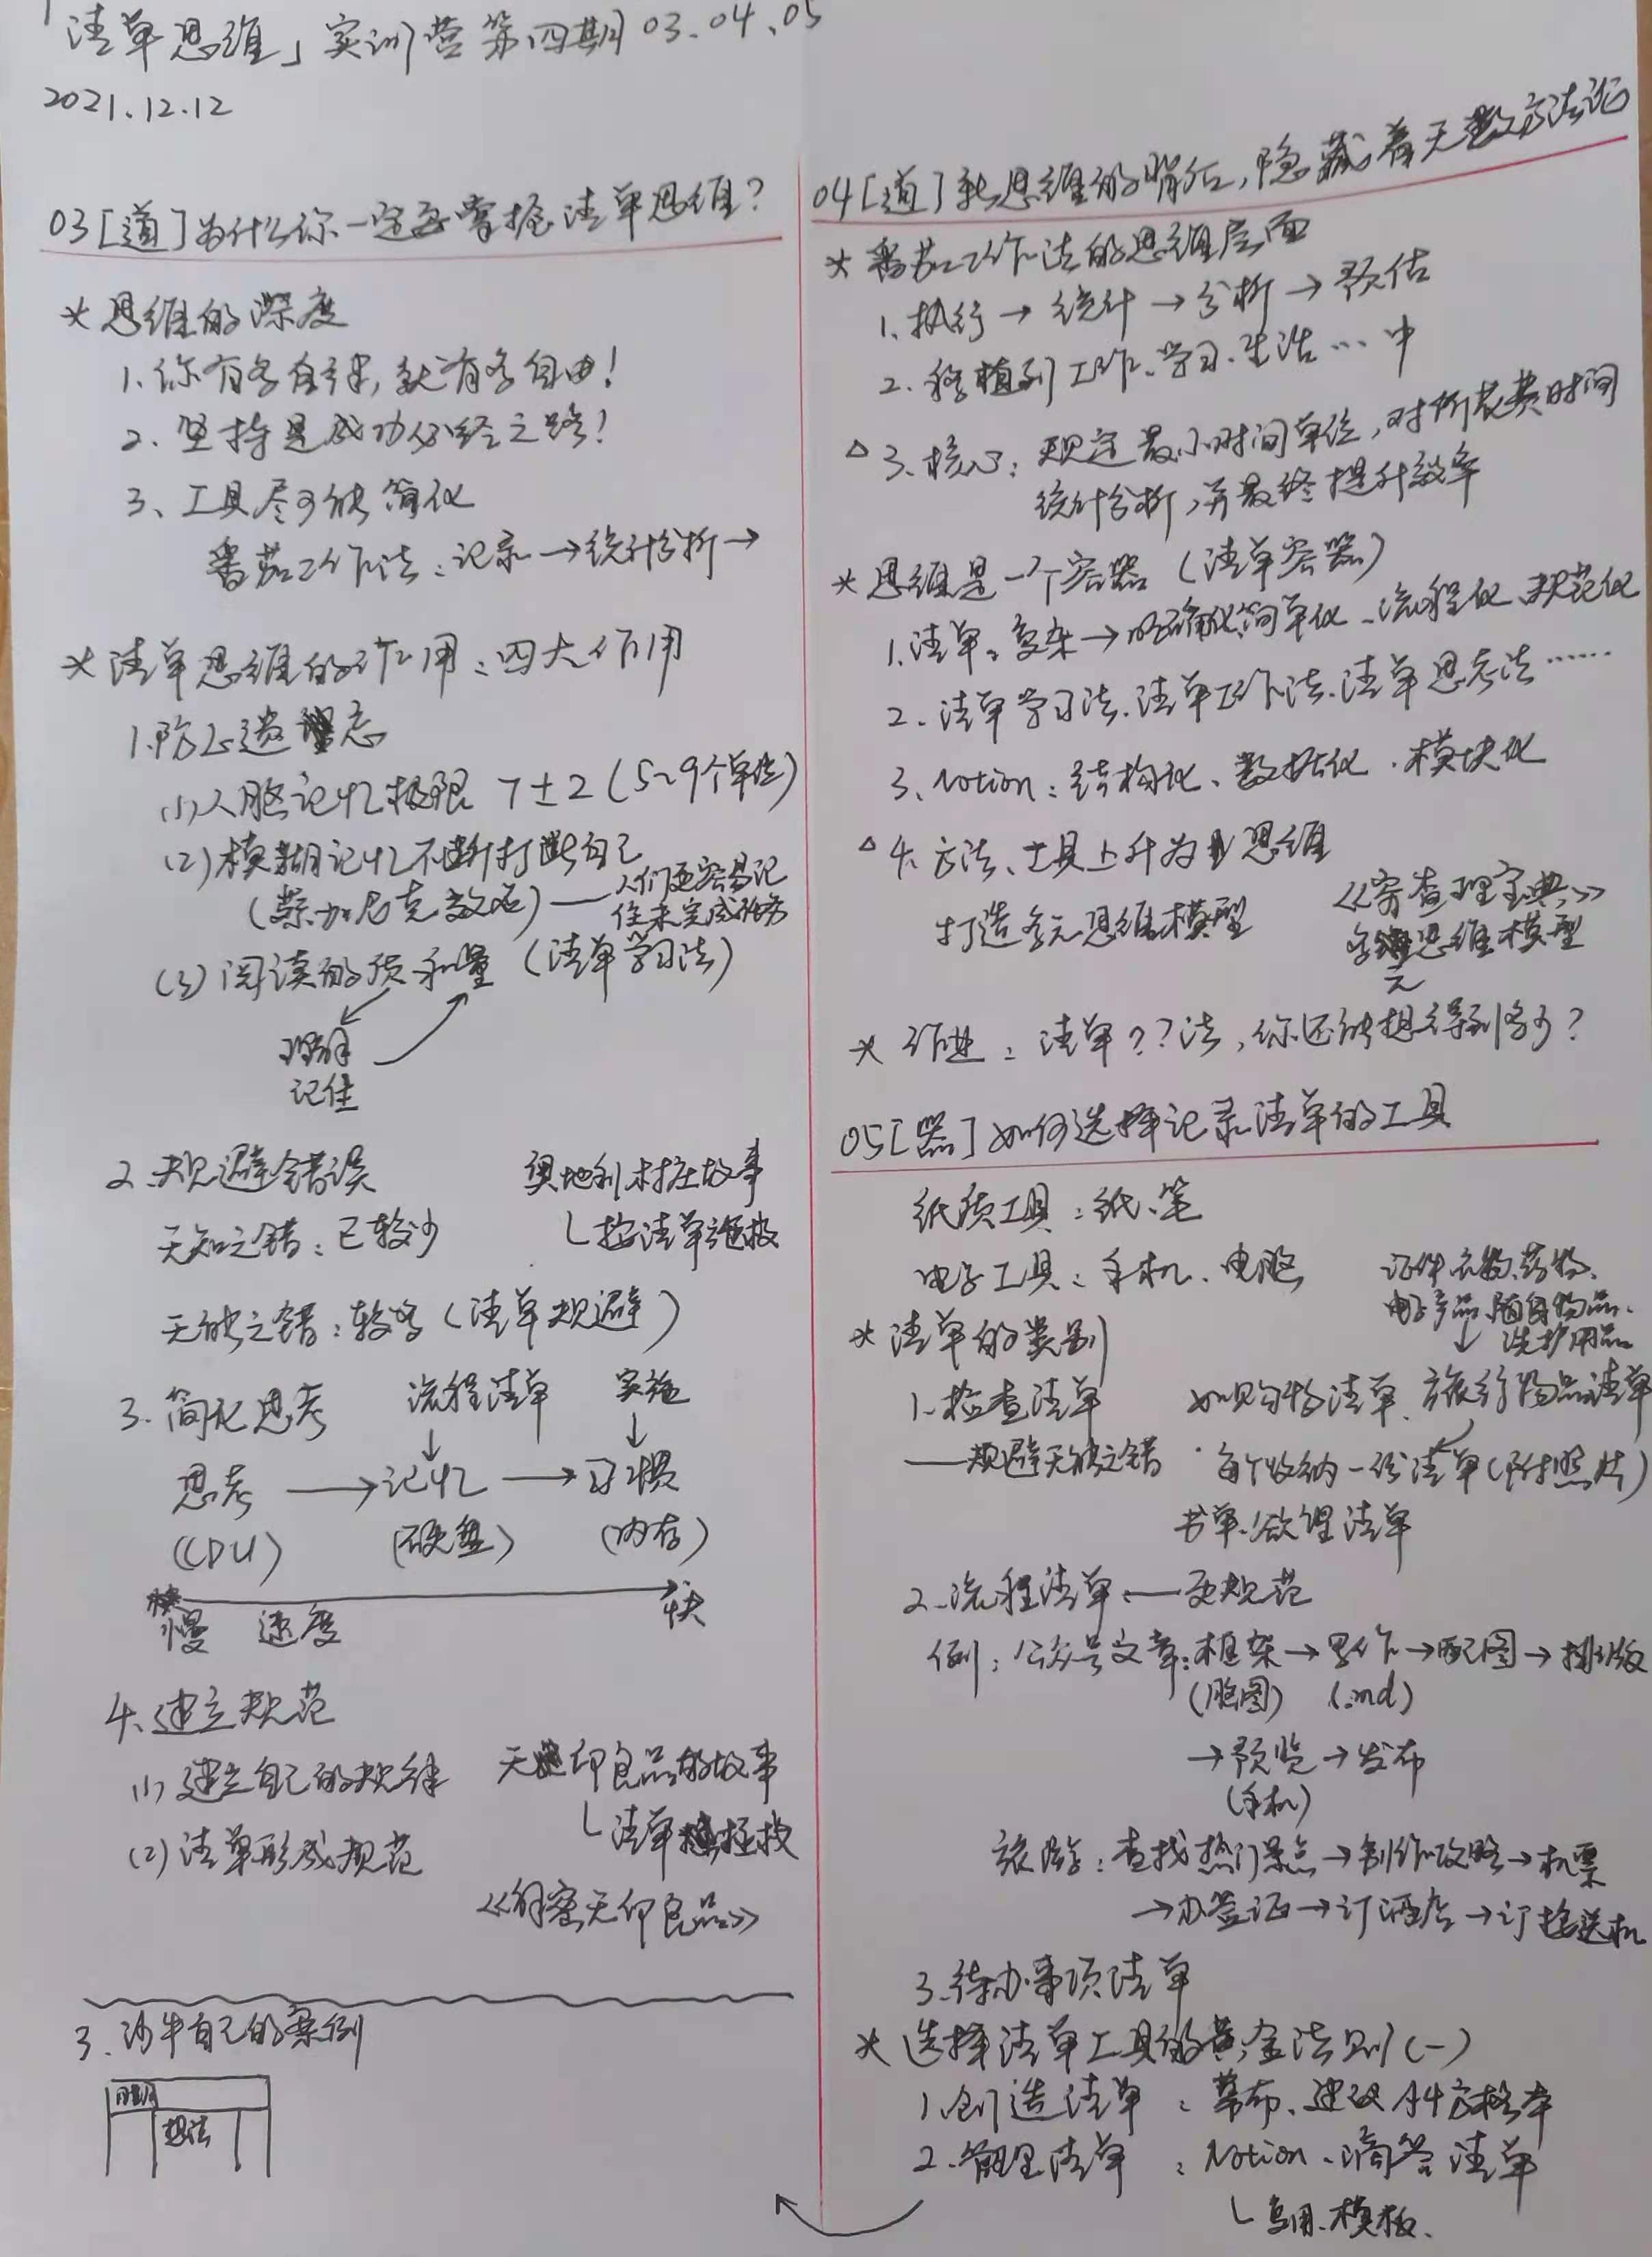 「清单思维」实训营第四期 03.04、05
2021.12.12
03[道]为什么你一定要掌握清单思维?
* 思维的深度
1.你有多自律,就有多自由!
2. 坚持是成功必经之路!
3、工具尽可能简化
番茄工作法:记录→统计分析→
* 清单思维的作用:四大作用
1.防止遗忘
(1)人脑记忆极限 7±2(5~9个单位)
(2)模糊记忆不断打断自己
(蔡加尼克效应)——人们更容易记
住未完成任务
(3)阅读的质和量(清单学习法)
理解
记住
2.规避错误 奥地利村庄故事
无知之错:已较少 └按清单施救
无能之错:较多(清单规避)
3.简化思考 流程清单 实施
↓ ↓
思考→记忆→习惯
(CPU) (硬盘) (内存)
慢 速度 快
4、建立规范
(1)建立自己的规律 无印良品的故事
(2)清单形成规范 └清单拯救
《解密无印良品》
3.沙牛自己的案例
想法
04[道]新思维的背后,隐藏着无数方法论
* 番茄工作法的思维层面
1.执行→统计→分析→预估
2.移植到工作、学习、生活…中
△ 3.核心:规定最小时间单位,对所花费时间
统计分析,并最终提升效率
* 思维是一个容器(清单容器)
1.清单:复杂→明确化、简单化、流程化、规范化
2.清单学习法、清单工作法、清单思考法……
3、Notion:结构化、数据化、模块化
△ 4.方法、工具上升为思维
打造多元思维模型 《穷查理宝典》
多元思维模型
* 作业:清单??法,你还能想得到多少?
05[器]如何选择记录清单的工具
纸质工具:纸、笔
电子工具:手机、电脑
证件、衣物、药物、
电子产品、随身物品、
↓ 洗护用品
* 清单的类别
1.检查清单 如购物清单、旅行物品清单
——规避无能之错 · 每个收纳一份清单(附照片)
书单、欲望清单
2.流程清单←—更规范
例:公众号文章:框架→写作→配图→排版
(脑图) (.md)
→预览→发布
(手机)
旅游:查找热门景点→制作攻略→机票
→办签证→订酒店→订接送机
3.待办事项清单
* 选择清单工具的黄金法则(一)
1.创造清单:幕布、建议A4方格本
2.管理清单:Notion、滴答清单
└复用、模板、